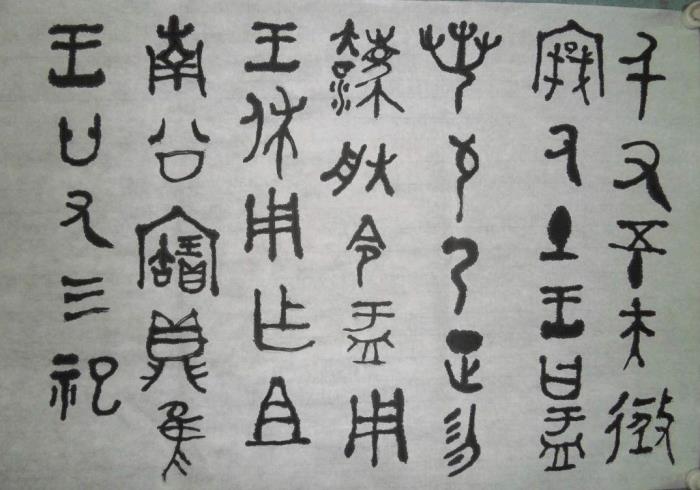 千又五十夫
厥土王曰盂
若敬乃正勿
灋朕令盂用
王休用乍且
南公寶鼎隹
王廿又三祀